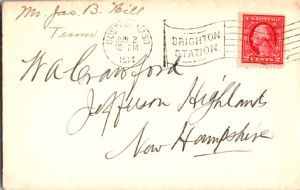 Mr. Jas. B. Hill
BOSTON, MASS
JUN 2
PM
1914
BRIGHTON
STATION
U.S. POSTAGE
2 CENTS 2
W A Crawford
Jefferson Highlands
New Hampshire